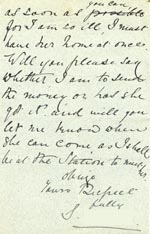 you can
as soon as possible
for I am so ill I must
have her home at once
Will you please say
whether I am to send
the money or has she
got it and will you
let me know when
she can come as I shall
be at the Station to meet her
oblige
Yours Respect
S. Lully